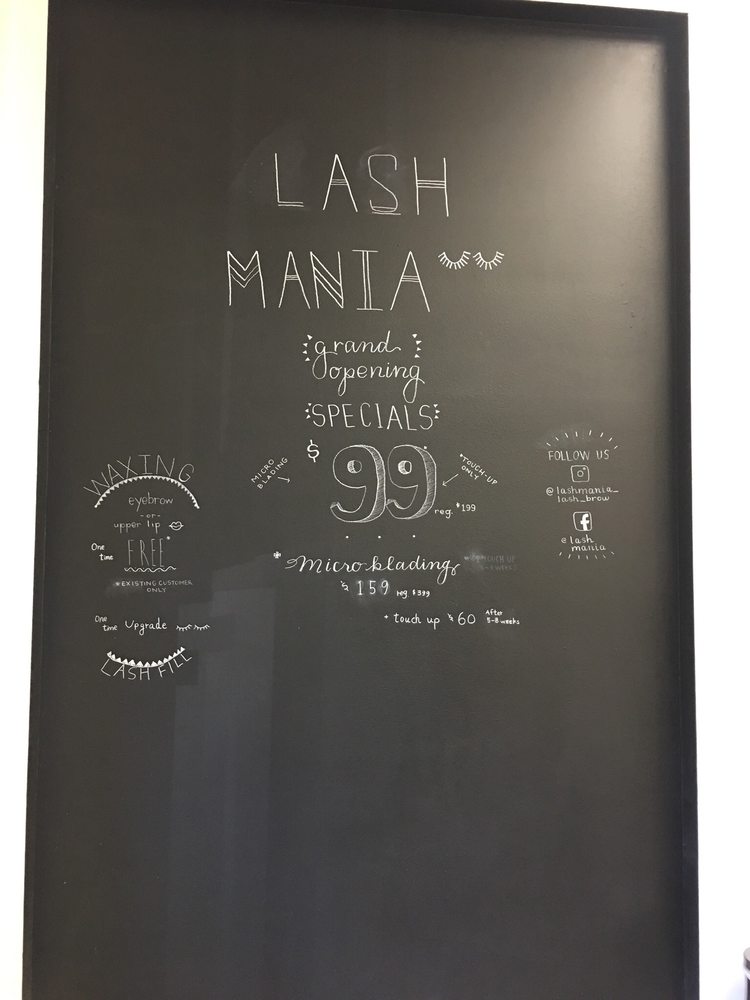 LASH
MANIA
grand
opening
SPECIALS
WAXING
eyebrow
-or-
upper lip
One
time
FREE*
*EXISTING CUSTOMER
ONLY
One
time
Upgrade
LASH FILL
MICRO
BLADING
$99
*TOUCH-UP
ONLY
reg. $199
* Microblading
$159 reg. $399
+ touch up $60 After
5-8 weeks
FOLLOW US
@lashmania_
lash_brow
@lash
mania